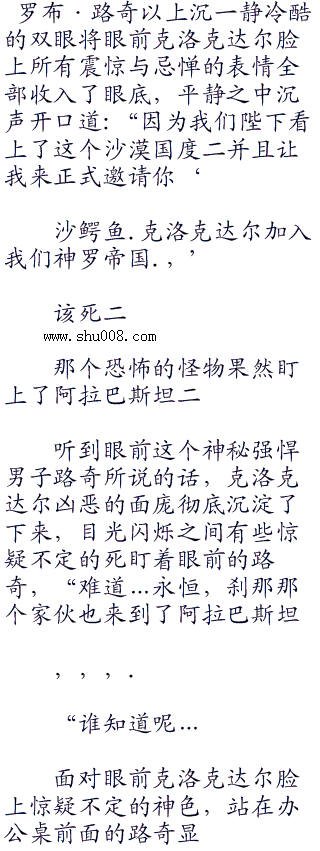 罗布·路奇以上沉一静冷酷
的双眼将眼前克洛克达尔脸
上所有震惊与忌惮的表情全
部收入了眼底，平静之中沉
声开口道：“因为我们陛下看
上了这个沙漠国度二并且让
我来正式邀请你‘
沙鳄鱼.克洛克达尔加入
我们神罗帝国.，’
该死二
www.shu008.com
那个恐怖的怪物果然盯
上了阿拉巴斯坦二
听到眼前这个神秘强悍
男子路奇所说的话，克洛克
达尔凶恶的面庞彻底沉淀了
下来，目光闪烁之间有些惊
疑不定的死盯着眼前的路
奇，“难道...永恒，刹那那
个家伙也来到了阿拉巴斯坦
，，，.
“谁知道呢...
面对眼前克洛克达尔脸
上惊疑不定的神色，站在办
公桌前面的路奇显